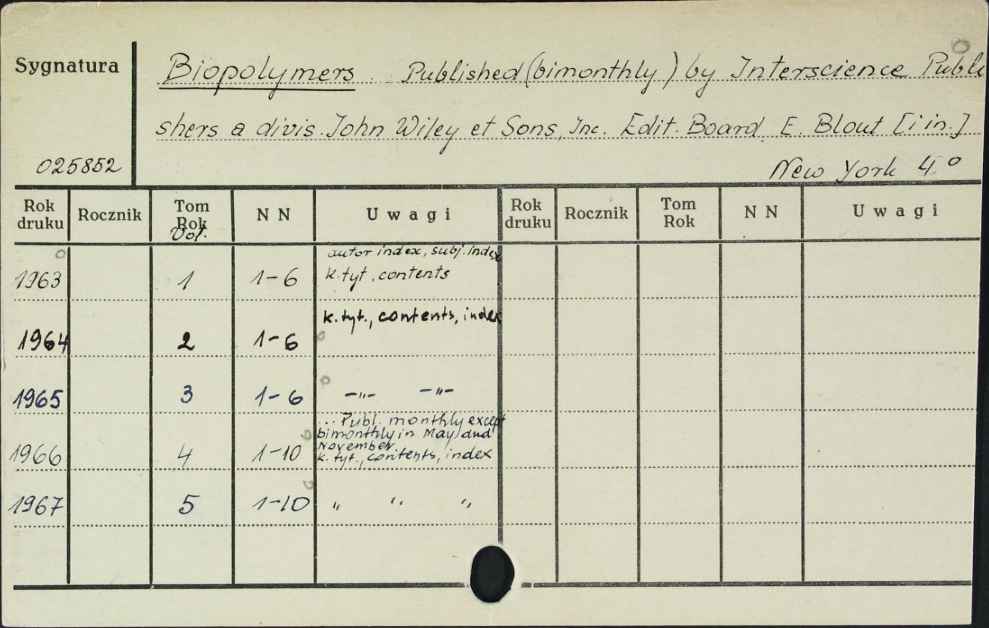 Sygnatura
Biopolymers Published (bimonthly) by Interscience Publi
shers a divis. John Wiley et Sons, Inc. Edit. Board E. Blout [i in.]
025852
New York 4°
Rok druku Rocznik Tom Rok Vol. N N Uwagi Rok druku Rocznik Tom Rok N N Uwagi
autor index, subj. index
1963 1 1-6 k. tyt., contents
k. tyt., contents, index
1964 2 1-6
1965 3 1-6 -"- -"-
... Publ. monthly except
bimonthly in May and
November.
1966 4 1-10 k. tyt., contents, index
1967 5 1-10 " " "